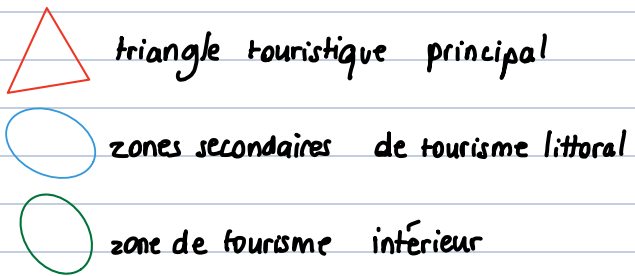 triangle touristique principal
zones secondaires de tourisme littoral
zone de tourisme intérieur